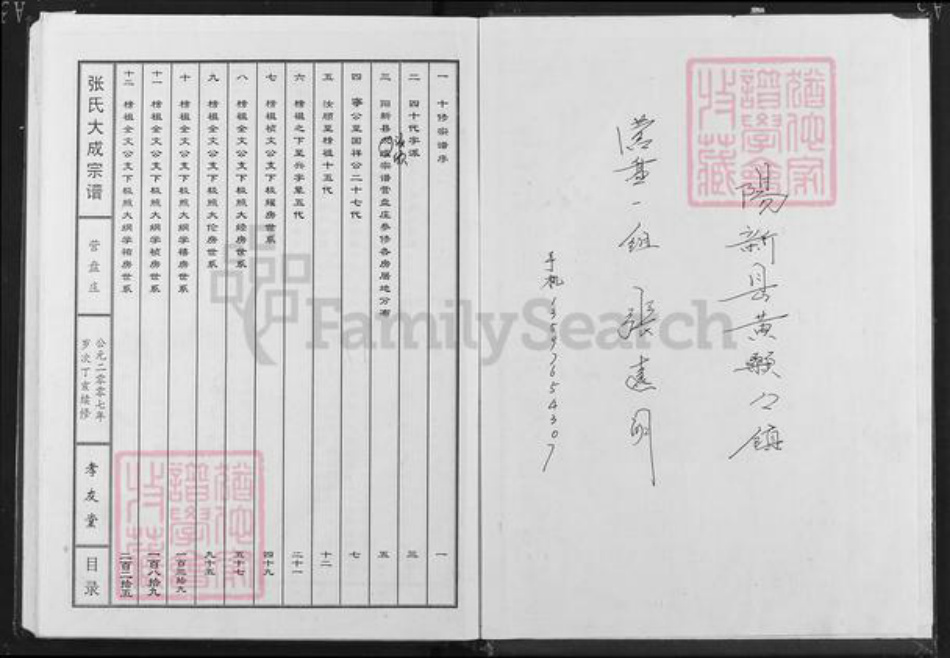 陽新县黄颡口镇
营盘一组 张远明
手机13597654307
一 十修宗谱序 一
二 四十代字派 三
三 阳新县 宗谱营盘庄参修各房居地分布 五
四 寧公至国祥公二十七代 七
五 汝顺至楕祖十五代 十二
六 楕祖之下至兴字辈五代 二十一
七 楕祖祯文公支下极耀房世系 四十九
八 楕祖全文公支下极照大经房世系 五十七
九 楕祖全文公支下极照大伦房世系 九十五
十 楕祖全文公支下极照大纲学禧房世系 一百三拾九
十一 楕祖全文公支下极照大纲学祯房世系 一百八拾九
十二 楕祖全文公支下极照大纲学祐房世系 二百二拾五
张氏大成宗谱
营盘庄
公元二零零七年
岁次丁亥续修
孝友堂
目录
猶他家譜學會收藏
猶他家譜學會收藏
FamilySearch